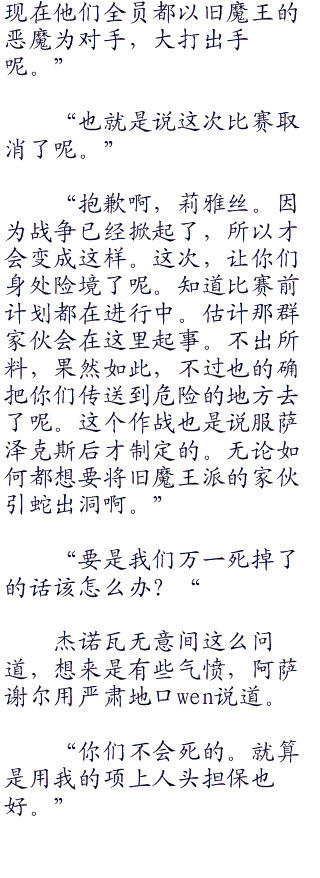 现在他们全员都以旧魔王的
恶魔为对手，大打出手
呢。”
“也就是说这次比赛取
消了呢。”
“抱歉啊，莉雅丝。因
为战争已经掀起了，所以才
会变成这样。这次，让你们
身处险境了呢。知道比赛前
计划都在进行中。估计那群
家伙会在这里起事。不出所
料，果然如此，不过也的确
把你们传送到危险的地方去
了呢。这个作战也是说服萨
泽克斯后才制定的。无论如
何都想要将旧魔王派的家伙
引蛇出洞啊。”
“要是我们万一死掉了
的话该怎么办？“
杰诺瓦无意间这么问
道，想来是有些气愤，阿萨
谢尔用严肃地口wen说道。
“你们不会死的。就算
是用我的项上人头担保也
好。”